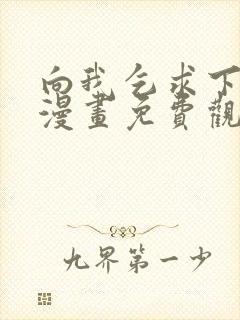 向我乞求下
漫畫免費觀
九界第一少